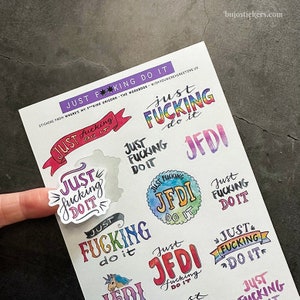 bujostickers.com
JUST F**KING DO IT
JUST fucking DO IT
just
FUCKING
do it
JUST
FUCKING
DO IT
JFDI
JUST
fucking
DO IT
JUST FUCKING
JFDI
DO IT
JUST
FUCKING
DO IT
JUST
FUCKING
do it
Just
JFDI
fucking
DO IT
JUST
FUCKING
DO IT
JFDI
Just
FUCKING
do it
JUST
FUCKING